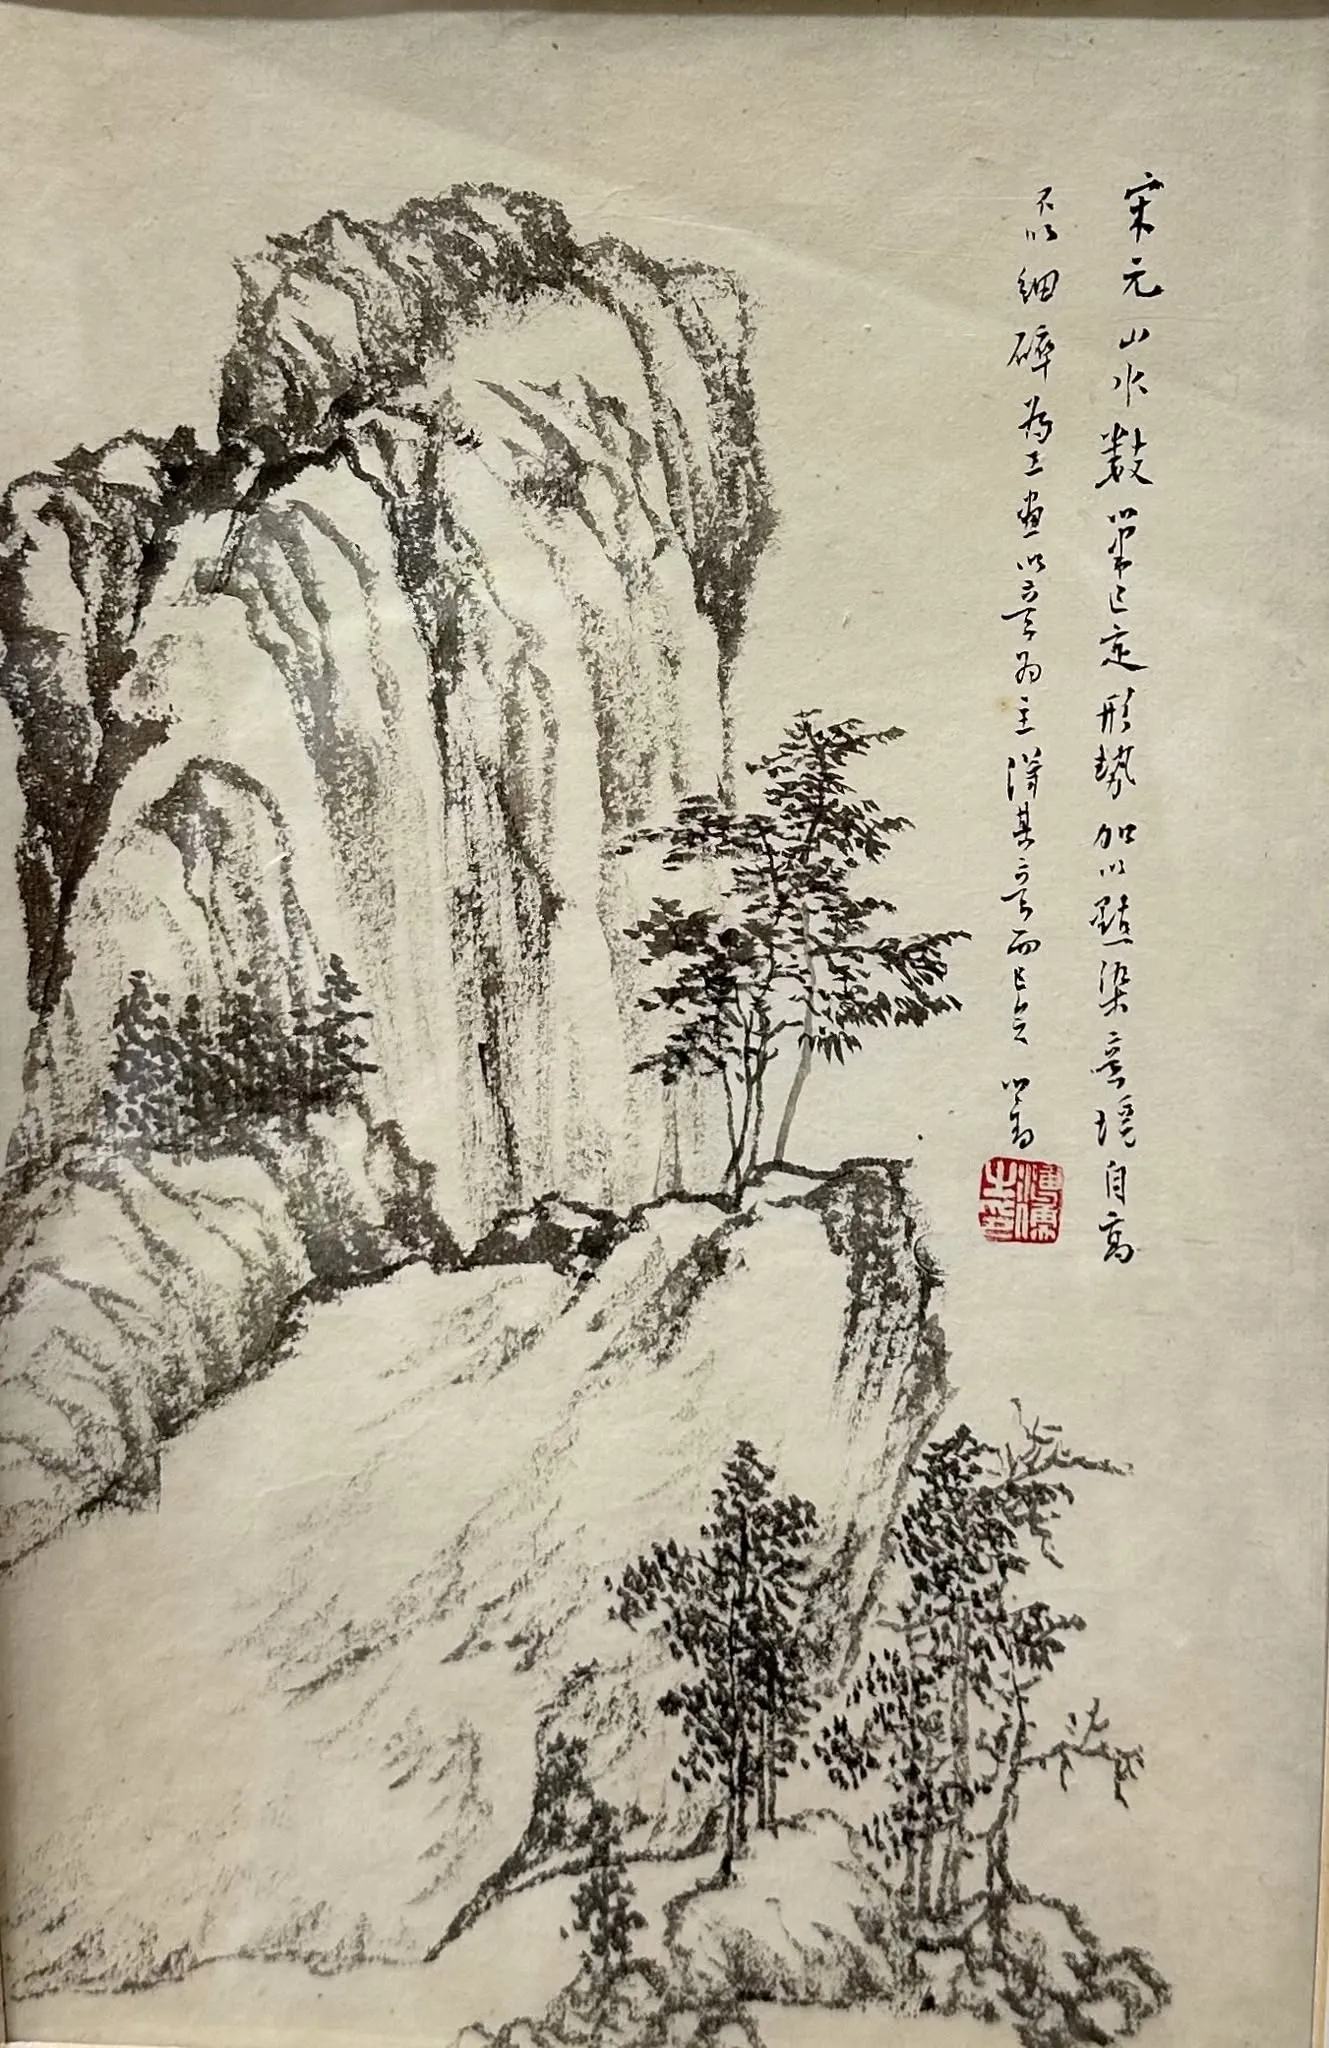 宋元山水數筆已定形勢加以點染意境自高
不以細碎為工畫以意為主得其意而已矣 心畬
溥儒之印